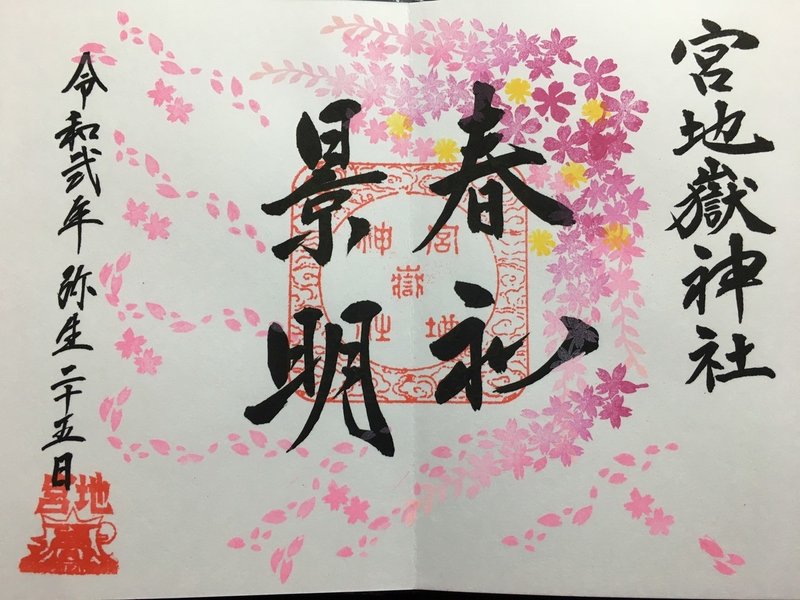 宮地嶽神社
春和
景明
宮地
嶽
神社
令和弐年 弥生二十五日
宮地